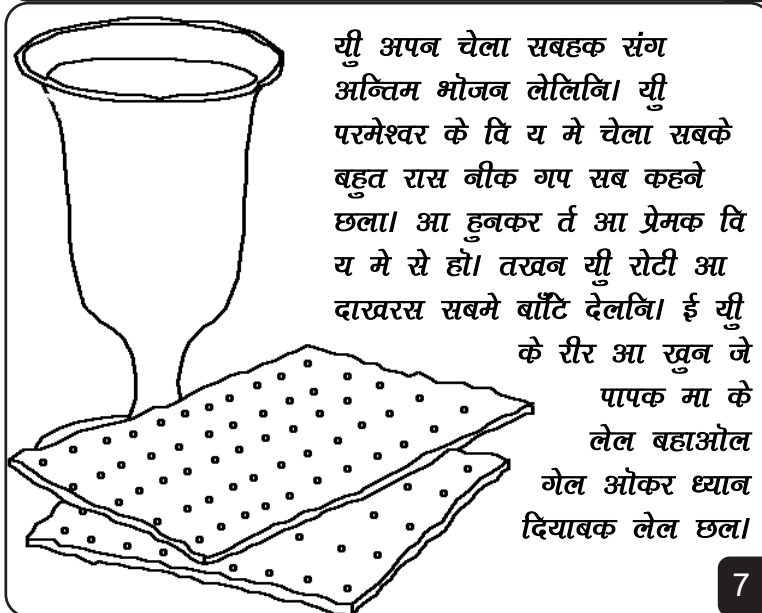 यी़ु अपन चेला सबहक संग
अन्तिम भॊजन लेलिनि। यी़ु
परमेश्वर के वि य मे चेला सबके
बहुत रास नीक गप सब कहने
छला। आ हुनकर र्त आ प्रेमक वि
य मे से हॊ। तखन यी़ु रोटी आ
दाखरस सबमे बाँटि देलनि। ई यी़ु
के रीर आ खुन जे
पापक मा के
लेल बहाऒल
गेल ऒकर ध्यान
दियाबक लेल छल।
7